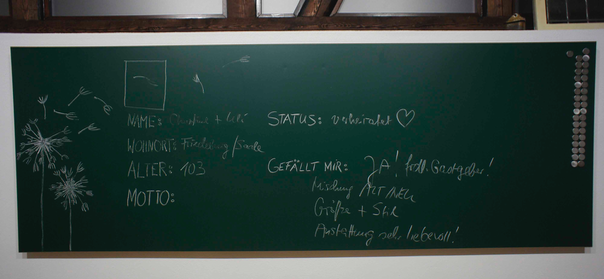 NAME: + 
STATUS: verheiratet ♡
WOHNORT:
ALTER: 103
GEFÄLLT MIR: JA! tolle Gastgeber!
MOTTO:
Mischung ALT/NEU
Größe + Stil
Ausstattung sehr liebevoll!